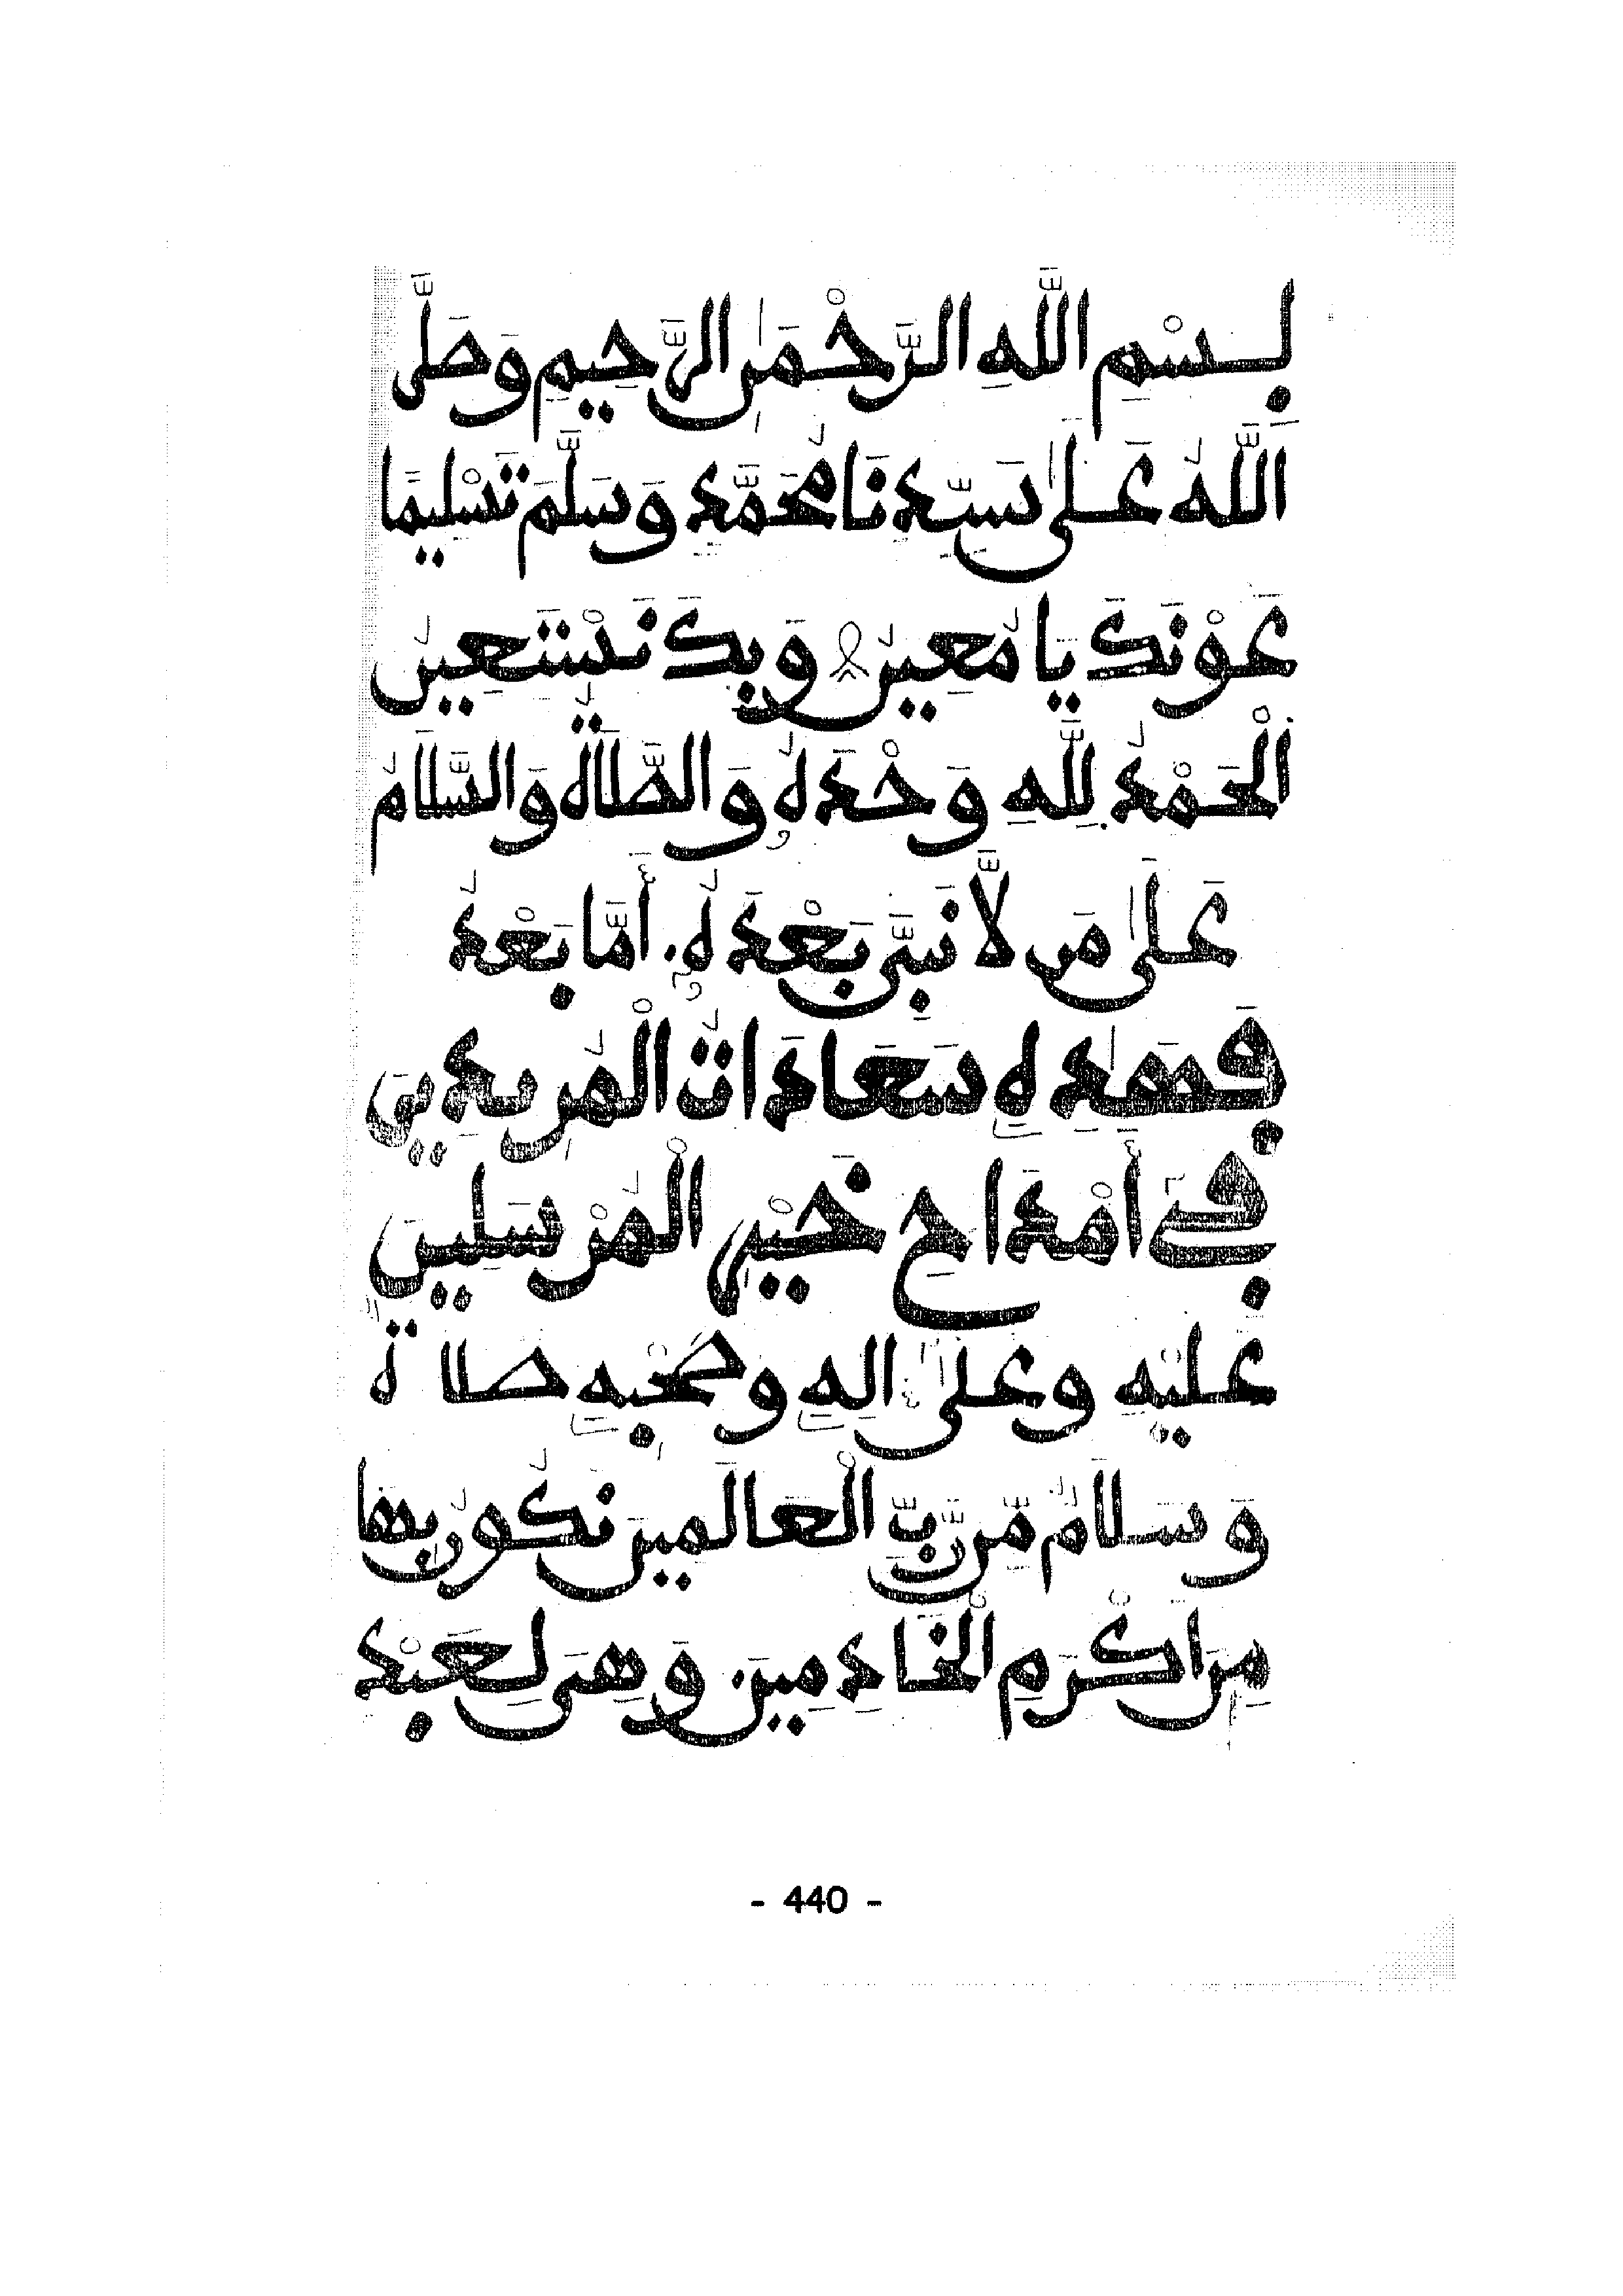 بِسْمِ اللَّهِ الرَّحْمَٰنِ الرَّحِيمِ وَصَلَّى
اللَّهُ عَلَىٰ سَيِّدِنَا مُحَمَّدٍ وَسَلَّمَ تَسْلِيمًا
عَوْنَكَ يَا مُعِينُ وَبِكَ نَسْتَعِينُ
الْحَمْدُ لِلَّهِ وَحْدَهُ وَالصَّلَاةُ وَالسَّلَامُ
عَلَىٰ مَن لَّا نَبِيَّ بَعْدَهُ. أَمَّا بَعْدُ
فَهَٰذِهِ سَعَادَاتُ الْمُرِيدِينَ
فِي أَمْدَاحِ خَيْرِ الْمُرْسَلِينَ
عَلَيْهِ وَعَلَىٰ الِهِ وَصَحْبِهِ صَلَاةٌ
وَسَلَامٌ مِّن رَّبِّ الْعَالَمِينَ نَكُونُ بِهَا
مِنَ اكْرَمِ الْخَادِمِينَ. وَهِيَ لِعَبْدِ
- 440 -